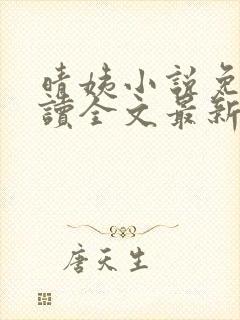 晴姨小說免
讀全文最新
唐天生